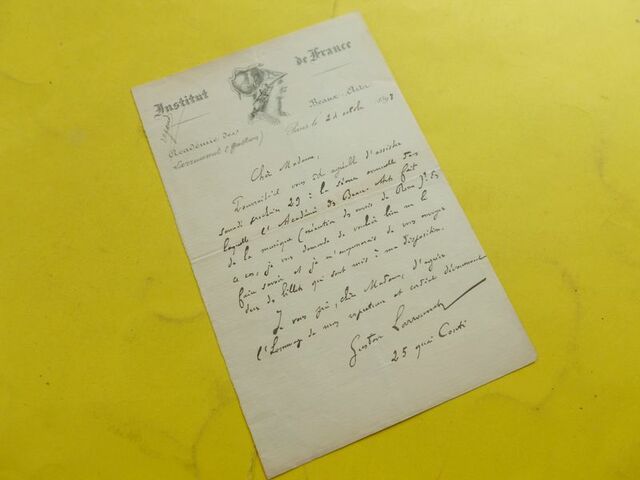 Institut de France
Académie des Beaux-Arts
Larroumet (Gustave)
Paris le 21 octobre 1898
Chère Madame,
Pourrait-il vous être agréable d'assister
samedi prochain 29 à la séance annuelle dans
laquelle l'Académie des Beaux-Arts fait
de la musique (exécution des envois de Rome)? En
ce cas, je vous demande de vouloir bien me le
faire savoir et je m'empresserais de vous envoyer
deux des billets qui sont mis à ma disposition.
Je vous prie, chère Madame, d'agréer
l'hommage de mes respectueux et cordial dévouement
Gustave Larroumet
25 quai Conti